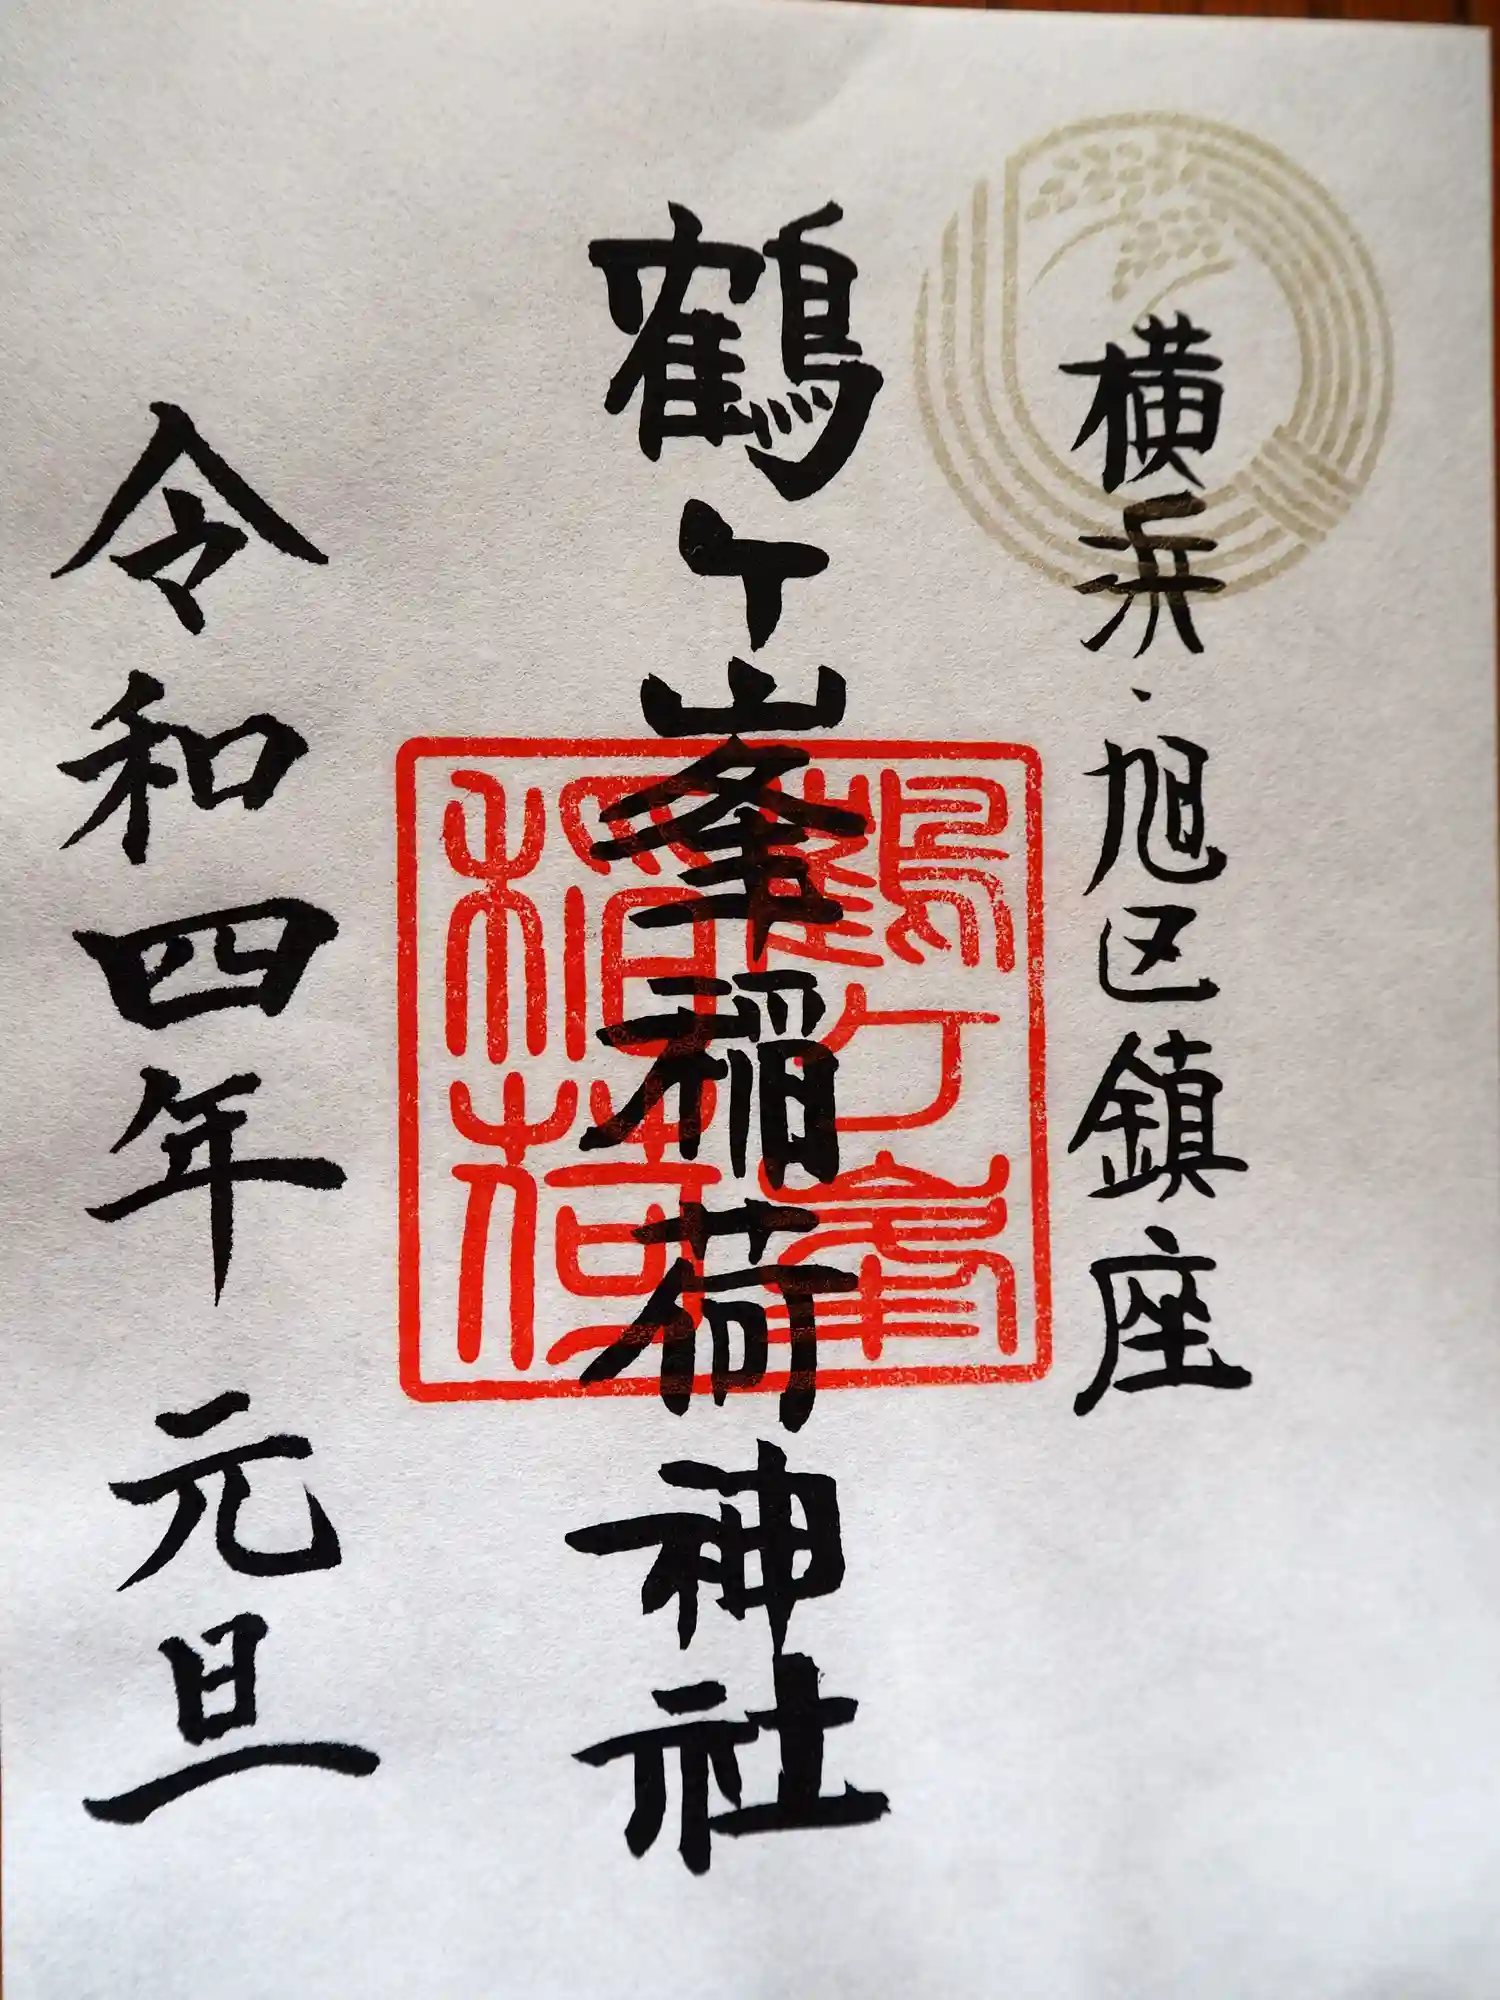 横浜・旭区鎮座
鶴ヶ峯稲荷神社
鶴ヶ峯
稲荷
令和四年 元旦